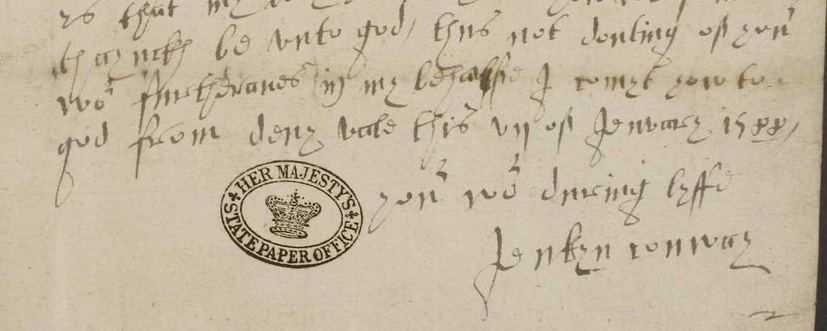 is that my
thanckes be unto god, thus not douting of your
wor furtherance in my behalffe I comyt yow to
god from deny vale this vij of Jenwary 1588,
your wor during lyffe
Jenkyn conway
HER MAJESTY'S
STATE PAPER OFFICE